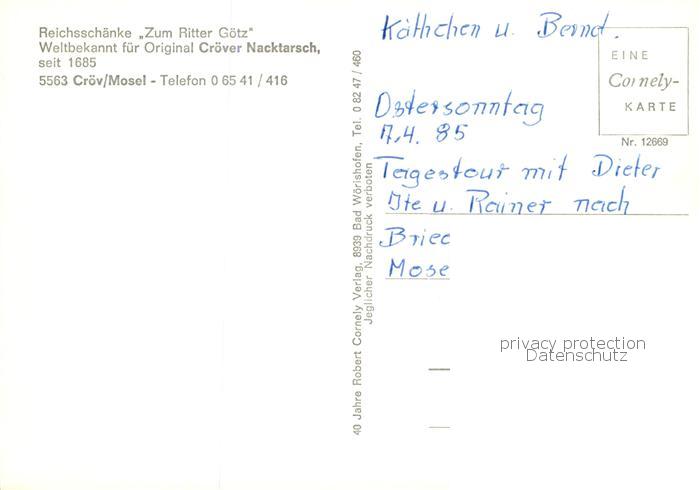 Reichsschänke „Zum Ritter Götz"
Weltbekannt für Original Cröver Nacktarsch,
seit 1685
5563 Cröv/Mosel - Telefon 0 65 41 / 416
40 Jahre Robert Cornely Verlag, 8939 Bad Wörishofen, Tel. 0 82 47 / 460
Jeglicher Nachdruck verboten
Käthchen u. Bernd.
EINE
Cornely-
KARTE
Nr. 12669
Ostersonntag
7.4. 85
Tagestour mit Dieter
Ute u. Rainer nach
Brie
Mose
privacy protection
Datenschutz